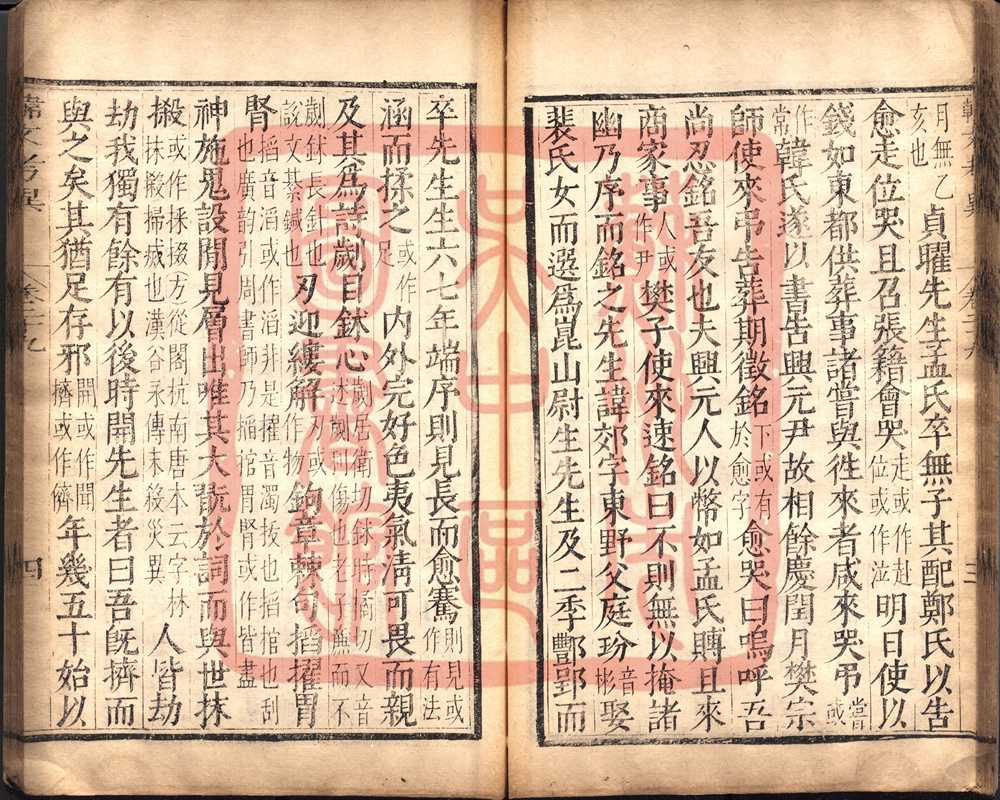 月無乙亥也貞曜先生孟氏卒無子其配鄭氏以告
愈走位哭且召張籍會哭走或作赴位或作泣明日使以
錢如東都供葬事諸嘗與徃來者咸來哭弔嘗或
作常韓氏遂以書告興元尹故相餘慶閏月樊宗
師使來弔告葬期徵銘下或有於愈字愈哭曰嗚呼吾
尚忍銘吾友也夫興元人以幣如孟氏賻且來
商家事人或作尹樊子使來速銘曰不則無以掩諸
幽乃序而銘之先生諱郊字東野父庭玢音彬娶
裴氏女而選爲崑山尉生先生及二季酆郢而
三
卒先生生六七年端序則見長而愈騫則見或作有法
涵而揉之或作足內外完好色夷氣淸可畏而親
及其爲詩劌目鉥心劌居衛切鉥時橘切又音述劌傷也老子廉而不
劌鉥長針也說文綦鍼也刃迎縷解刃或作物鉤章棘句搯擢胃
腎搯音滔或作滔非是擢音濁拔也搯棺也刮也廣韻引周書師乃搯棺胃腎或作皆盡
神施鬼設閒見層出唯其大翫於詞而與世抹
摋或作抹掇方從閣杭南唐本云字林抹摋掃滅也漢谷永傳末殺災異人皆劫
劫我獨有餘有以後時開先生者曰吾旣擠而
與之矣其猶足存邪開或作聞擠或作儕年幾五十始以
韓文考異 卷二十九 四